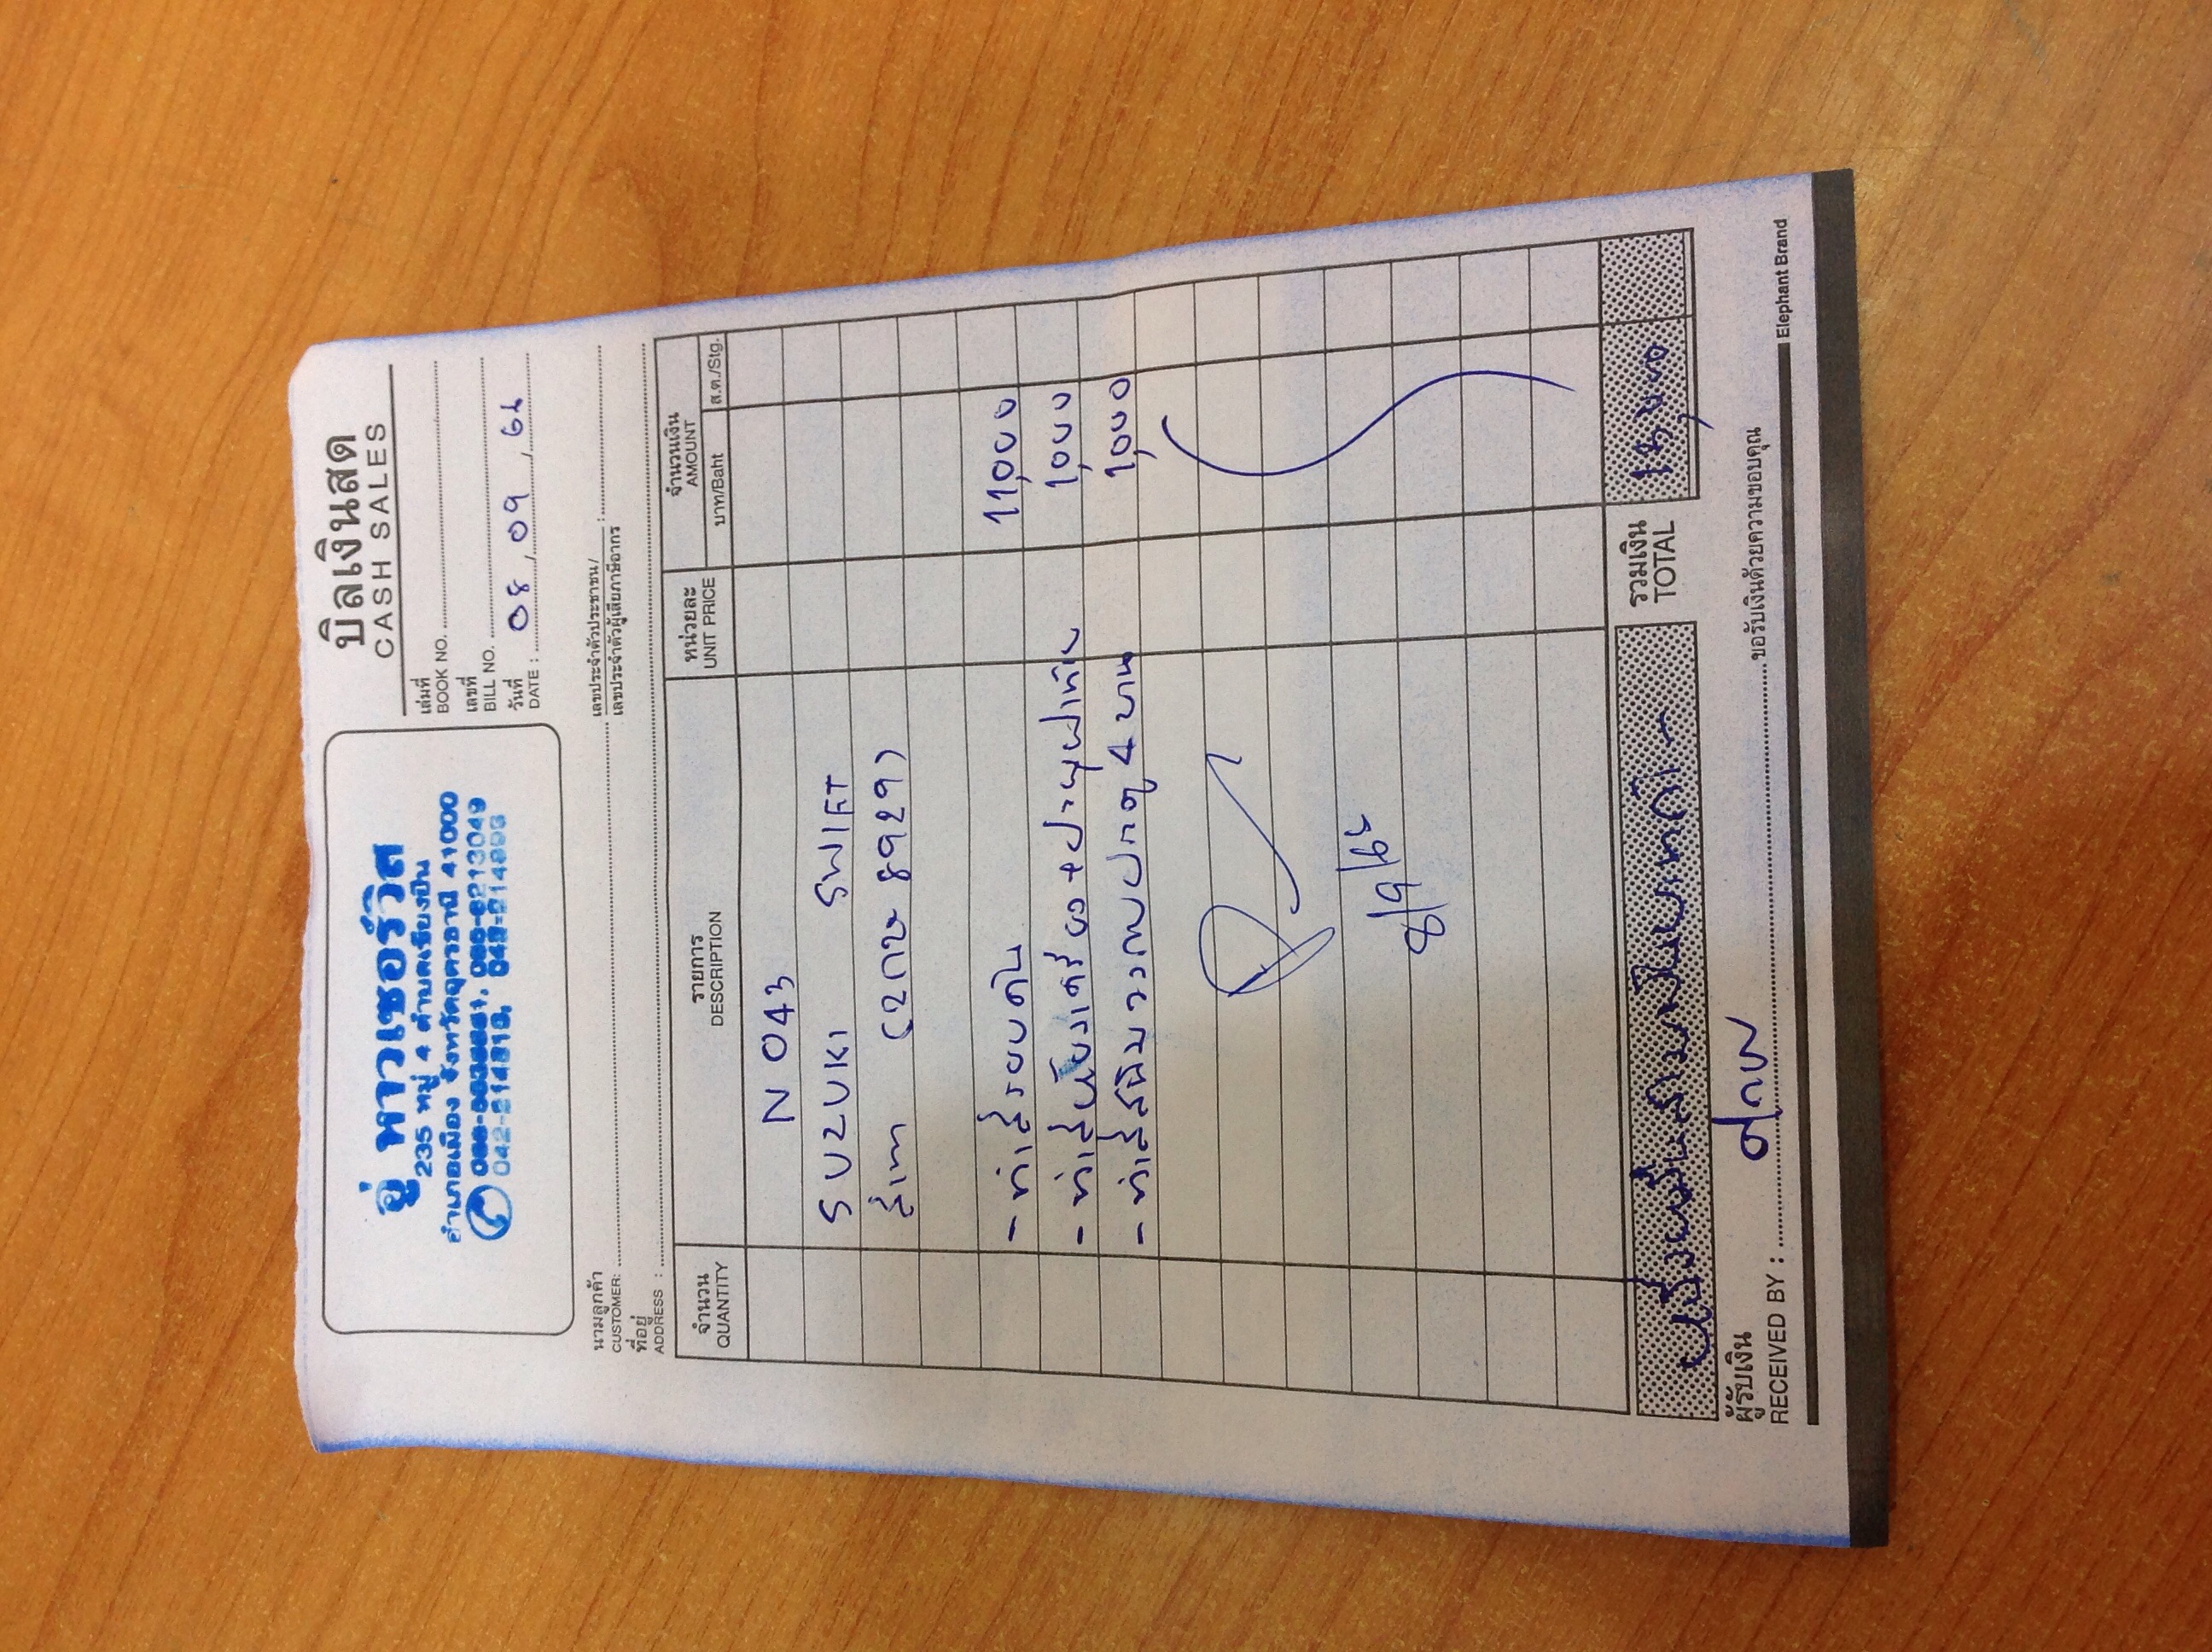 อู่ ทาวเซอร์วิส
235 หมู่ 4 ตำบลเชียงยืน
อำเภอเมือง จังหวัดอุดรธานี 41000
บิลเงินสด
CASH SALES
เล่มที่
BOOK NO.
เลขที่
BILL NO.
วันที่
DATE : 08 / 09 / 62
นามลูกค้า
CUSTOMER:
ที่อยู่
ADDRESS :
เลขประจำตัวประชาชน/
เลขประจำตัวผู้เสียภาษีอากร :
จำนวน
QUANTITY
รายการ
DESCRIPTION
หน่วยละ
UNIT PRICE
จำนวนเงิน
AMOUNT
บาท/Baht
ส.ต./Stg.
N 043
SUZUKI SWIFT
สีเทา (2กษ 8929)
- ทำสีรอบคัน 11,000
- ทำสีห้องเครื่อง + ประตูฝาท้าย 1,000
- ทำสีวงกบประตู 4 บาน 1,000
8/9/62
หนึ่งหมื่นสามพันบาทถ้วน
รวมเงิน
TOTAL
13,000
ผู้รับเงิน
RECEIVED BY :
ขอรับเงินด้วยความขอบคุณ
Elephant Brand